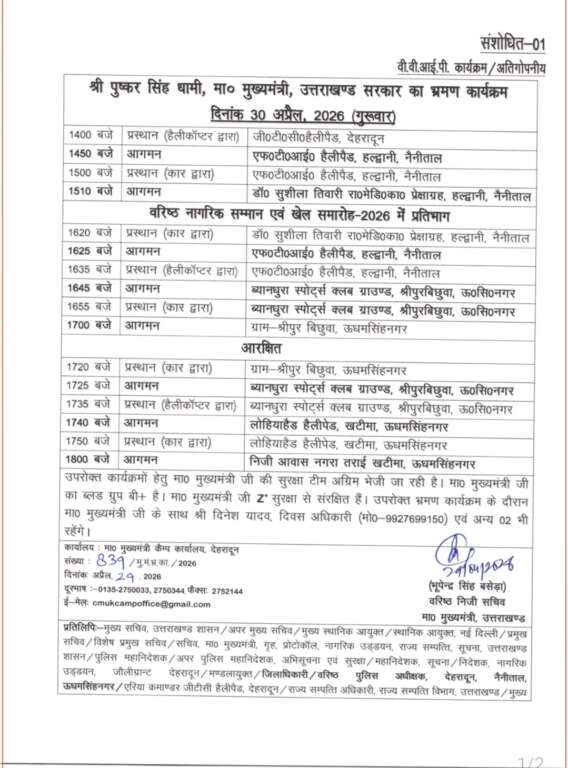 संशोधित–01
वी.वी.आई.पी. कार्यक्रम/अतिगोपनीय
श्री पुष्कर सिंह धामी, मा० मुख्यमंत्री, उत्तराखण्ड सरकार का भ्रमण कार्यक्रम
दिनांक 30 अप्रैल, 2026 (गुरूवार)
1400 बजे प्रस्थान (हैलीकॉप्टर द्वारा) जी०टी०सी०हैलीपैड, देहरादून
1450 बजे आगमन एफ०टी०आई० हैलीपैड, हल्द्वानी, नैनीताल
1500 बजे प्रस्थान (कार द्वारा) एफ०टी०आई० हैलीपैड, हल्द्वानी, नैनीताल
1510 बजे आगमन डॉ० सुशीला तिवारी रा०मेडि०का० प्रेक्षाग्रह, हल्द्वानी, नैनीताल
वरिष्ठ नागरिक सम्मान एवं खेल समारोह-2026 में प्रतिभाग
1620 बजे प्रस्थान (कार द्वारा) डॉ० सुशीला तिवारी रा०मेडि०का० प्रेक्षाग्रह, हल्द्वानी, नैनीताल
1625 बजे आगमन एफ०टी०आई० हैलीपैड, हल्द्वानी, नैनीताल
1635 बजे प्रस्थान (हैलीकॉप्टर द्वारा) एफ०टी०आई० हैलीपैड, हल्द्वानी, नैनीताल
1645 बजे आगमन ब्यानधुरा स्पोर्ट्स क्लब ग्राउण्ड, श्रीपुरबिछुवा, ऊ०सिं०नगर
1655 बजे प्रस्थान (कार द्वारा) ब्यानधुरा स्पोर्ट्स क्लब ग्राउण्ड, श्रीपुरबिछुवा, ऊ०सिं०नगर
1700 बजे आगमन ग्राम–श्रीपुर बिछुवा, ऊधमसिंहनगर
आरक्षित
1720 बजे प्रस्थान (कार द्वारा) ग्राम–श्रीपुर बिछुवा, ऊधमसिंहनगर
1725 बजे आगमन ब्यानधुरा स्पोर्ट्स क्लब ग्राउण्ड, श्रीपुरबिछुवा, ऊ०सिं०नगर
1735 बजे प्रस्थान (हैलीकॉप्टर द्वारा) ब्यानधुरा स्पोर्ट्स क्लब ग्राउण्ड, श्रीपुरबिछुवा, ऊ०सिं०नगर
1740 बजे आगमन लोहियाहैड हैलीपेड, खटीमा, ऊधमसिंहनगर
1750 बजे प्रस्थान (कार द्वारा) लोहियाहैड हैलीपेड, खटीमा, ऊधमसिंहनगर
1800 बजे आगमन निजी आवास नगरा तराई खटीमा, ऊधमसिंहनगर
उपरोक्त कार्यक्रमों हेतु मा० मुख्यमंत्री जी की सुरक्षा टीम अग्रिम भेजी जा रही है। मा० मुख्यमंत्री जी
का ब्लड ग्रुप बी+ है। मा० मुख्यमंत्री जी Z+ सुरक्षा से संरक्षित हैं। उपरोक्त भ्रमण कार्यक्रम के दौरान
मा० मुख्यमंत्री जी के साथ श्री दिनेश यादव, दिवस अधिकारी (मो०-9927699150) एवं अन्य 02 भी
रहेंगे।
कार्यालय : मा० मुख्यमंत्री कैम्प कार्यालय, देहरादून
संख्या : 839/मु.मं.भ्र.का./2026
दिनांकः अप्रैल, 29, 2026
दूरभाष :-0135-2750033, 2750344 फैक्सः 2752144
ई-मेलः cmukcampoffice@gmail.com
29/04/2026
(भूपेन्द्र सिंह बसेड़ा)
वरिष्ठ निजी सचिव
मा० मुख्यमंत्री, उत्तराखण्ड
प्रतिलिपिः– मुख्य सचिव, उत्तराखण्ड शासन/अपर मुख्य सचिव/मुख्य स्थानिक आयुक्त/स्थानिक आयुक्त, नई दिल्ली/प्रमुख
सचिव/विशेष प्रमुख सचिव/सचिव, मा० मुख्यमंत्री, गृह, प्रोटोकॉल, नागरिक उड्डयन, राज्य सम्पत्ति, सूचना, उत्तराखण्ड
शासन/पुलिस महानिदेशक/अपर पुलिस महानिदेशक, अभिसूचना एवं सुरक्षा/महानिदेशक, सूचना/निदेशक, नागरिक
उड्डयन, जौलीग्रान्ट देहरादून/मण्डलायुक्त/जिलाधिकारी/वरिष्ठ पुलिस अधीक्षक, देहरादून, नैनीताल,
ऊधमसिंहनगर/एरिया कमाण्डर जीटीसी हैलीपैड, देहरादून/राज्य सम्पत्ति अधिकारी, राज्य सम्पत्ति विभाग, उत्तराखण्ड/मुख्य
1/2